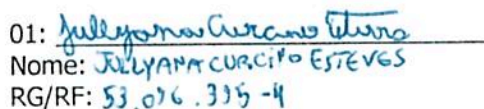 01: Jullyana Curcino Esteves
Nome: JULLYANA CURCINO ESTEVES
RG/RF: 53.096.395-4